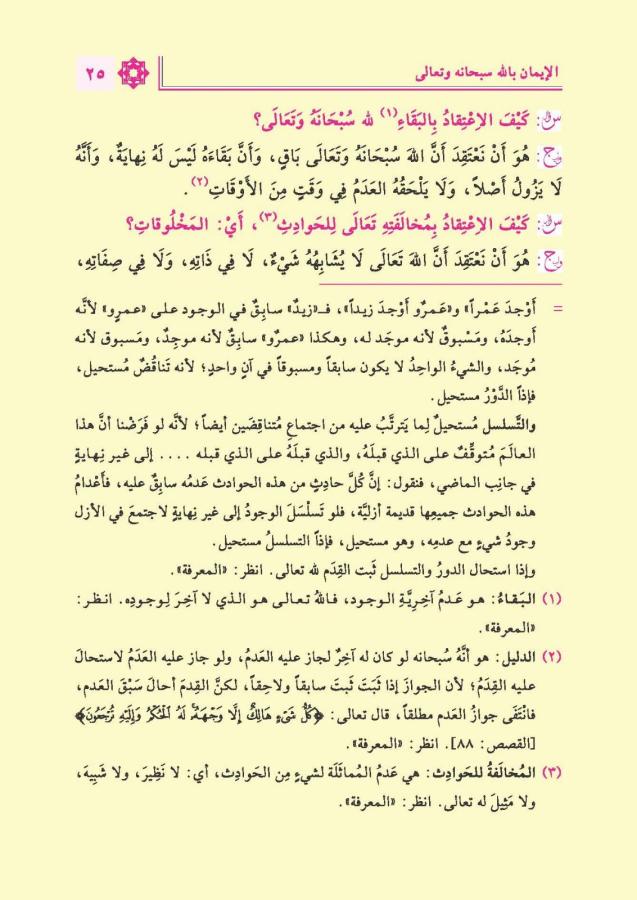 الإيمان بالله سبحانه وتعالى ٢٥
س: كَيْفَ الاِعْتِقادُ بِالبَقَاءِ(١) لله سُبْحَانَهُ وَتَعَالَى؟
ج: هُوَ أَنْ نَعْتَقِدَ أَنَّ اللهَ سُبْحَانَهُ وَتَعَالَى بَاقٍ، وَأَنَّ بَقَاءَهُ لَيْسَ لَهُ نِهايَةٌ، وَأَنَّهُ
لَا يَزُولُ أَصْلاً، وَلَا يَلْحَقُهُ العَدَمُ فِي وَقَتٍ مِنَ الأَوْقَاتِ(٢).
س: كَيْفَ الاِعْتِقادُ بِمُخالَفَتِهِ تَعَالَى لِلحَوادِثِ(٣)، أَيْ: المَخْلُوقاتِ؟
ج: هُوَ أَنْ نَعْتَقِدَ أَنَّ اللهَ تَعَالَى لَا يُشَابِهُهُ شَيْءٌ، لَا فِي ذَاتِهِ، وَلَا فِي صِفَاتِهِ،
= أَوْجدَ عَمْراً» و«عَمرٌو أَوْجدَ زيداً»، فـ«زيدٌ» سابِقٌ في الوجود على «عمرٍو» لأنَّه
أوجدَهُ، ومَسْبوقٌ لأنه موجَد له، وهكذا «عمرٌو» سابقٌ لأنه موجِدٌ، ومَسبوق لأنه
مُوجَد، والشيءُ الواحِدُ لا يكون سابقاً ومسبوقاً في آنٍ واحدٍ؛ لأنه تَناقُضٌ مُستحيل،
فإذاً الدَّوْرُ مستحيل.
والتَّسلسل مُستحيلٌ لِما يَترتَّبُ عليه من اجتماعِ مُتناقِضَين أيضاً؛ لأنَّه لو فَرَضْنا أنَّ هذا
العالَمَ مُتوقِّفٌ على الذي قبلَهُ، والذي قبلَهُ على الذي قبله .... إلى غير نِهايةٍ
في جانِب الماضي، فنقول: إنَّ كُلَّ حادِثٍ من هذه الحوادث عَدمُه سابِقٌ عليه، فأَعْدامُ
هذه الحوادث جميعِها قديمة أزليَّة، فلو تَسلْسَلَ الوجودُ إلى غير نِهايةٍ لاجتمعَ في الأزل
وجودُ شيءٍ مع عدمِه، وهو مستحيل، فإذاً التسلسلُ مستحيل.
وإذا استحال الدورُ والتسلسل ثَبت القِدَم لله تعالى. انظر: «المعرفة».
(١) البَقـاءُ: هـو عَـدمُ آخِرِيَّةِ الوجـود، فـاللهُ تعـالى هـو الـذي لا آخِـرَ لِوجودِه. انظـر:
«المعرفة».
(٢) الدليل: هو أنَّهُ سُبحانه لو كان له آخِرٌ لجاز عليه العَدمُ، ولو جاز عليه العَدَمُ لاستحالَ
عليه القِدَمُ؛ لأن الجوازَ إذا ثَبَتَ ثَبتَ سابقاً ولاحِقاً، لكنَّ القِدمَ أحالَ سَبْقَ العَدم،
فانْتَفَى جوازُ العَدم مطلقاً، قال تعالى: ﴿كُلُّ شَىْءٍ هَالِكٌ إِلَّا وَجْهَهُۥ لَهُ ٱلْحُكْمُ وَإِلَيْهِ تُرْجَعُونَ﴾
[القصص: ٨٨]. انظر: «المعرفة».
(٣) المُخالفَةُ للحَوادِث: هي عَدمُ المُماثَلَة لشيءٍ مِن الحَوادِث، أي: لا نَظِيرَ، ولا شَبِيهَ،
ولا مَثِيلَ له تعالى. انظر: «المعرفة».